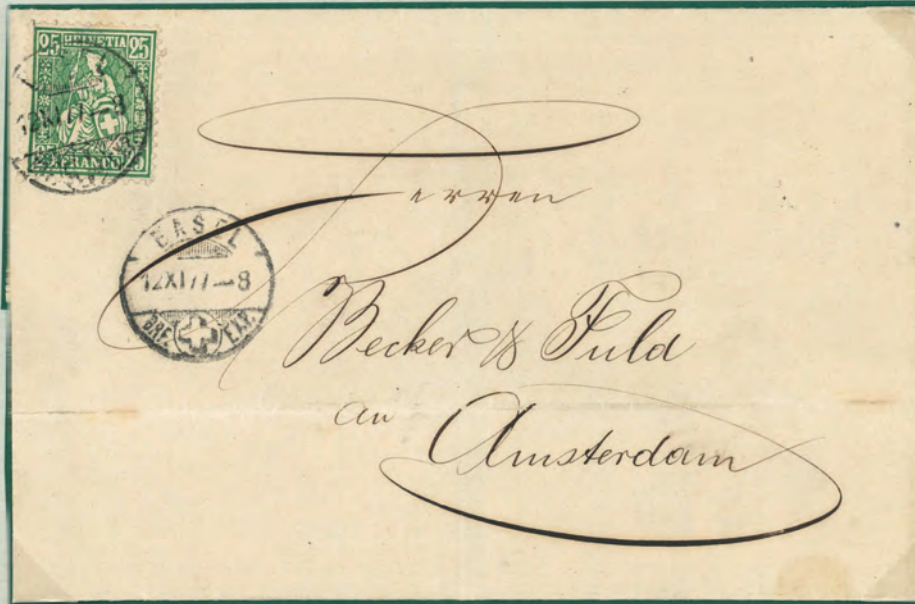 25 HELVETIA 25
12XI77–8
25 FRANCO 25
BASEL
12XI77–8
BRF. EXP.
Herren
Becker & Fuld
in
Amsterdam